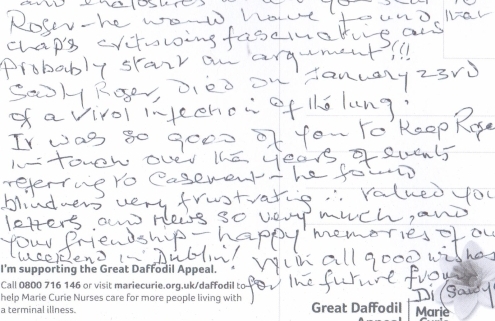 and enclosures
Roger - he would have found that
chap's criticising fascinating and
Probably start an argument!!!
Sadly Roger, died on January 23rd
of a viral infection of the lung.
It was so good of you to keep Roger
in touch over the years of events
referring to Casement - he found
blindness very frustrating ∴ valued your
letters and news so very much, and
your friendship - happy memories of our
weekend in Dublin! With all good wishes
for the future from
Di (Sawy
I'm supporting the Great Daffodil Appeal.
Call 0800 716 146 or visit mariecurie.org.uk/daffodil to
help Marie Curie Nurses care for more people living with
a terminal illness.
Great Daffodil
Appeal
Marie
Curie